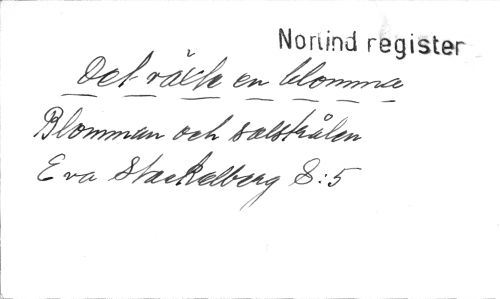 Norlind register
Det växte en blomma
Blomman och solstrålen
Eva Stackelberg S:5